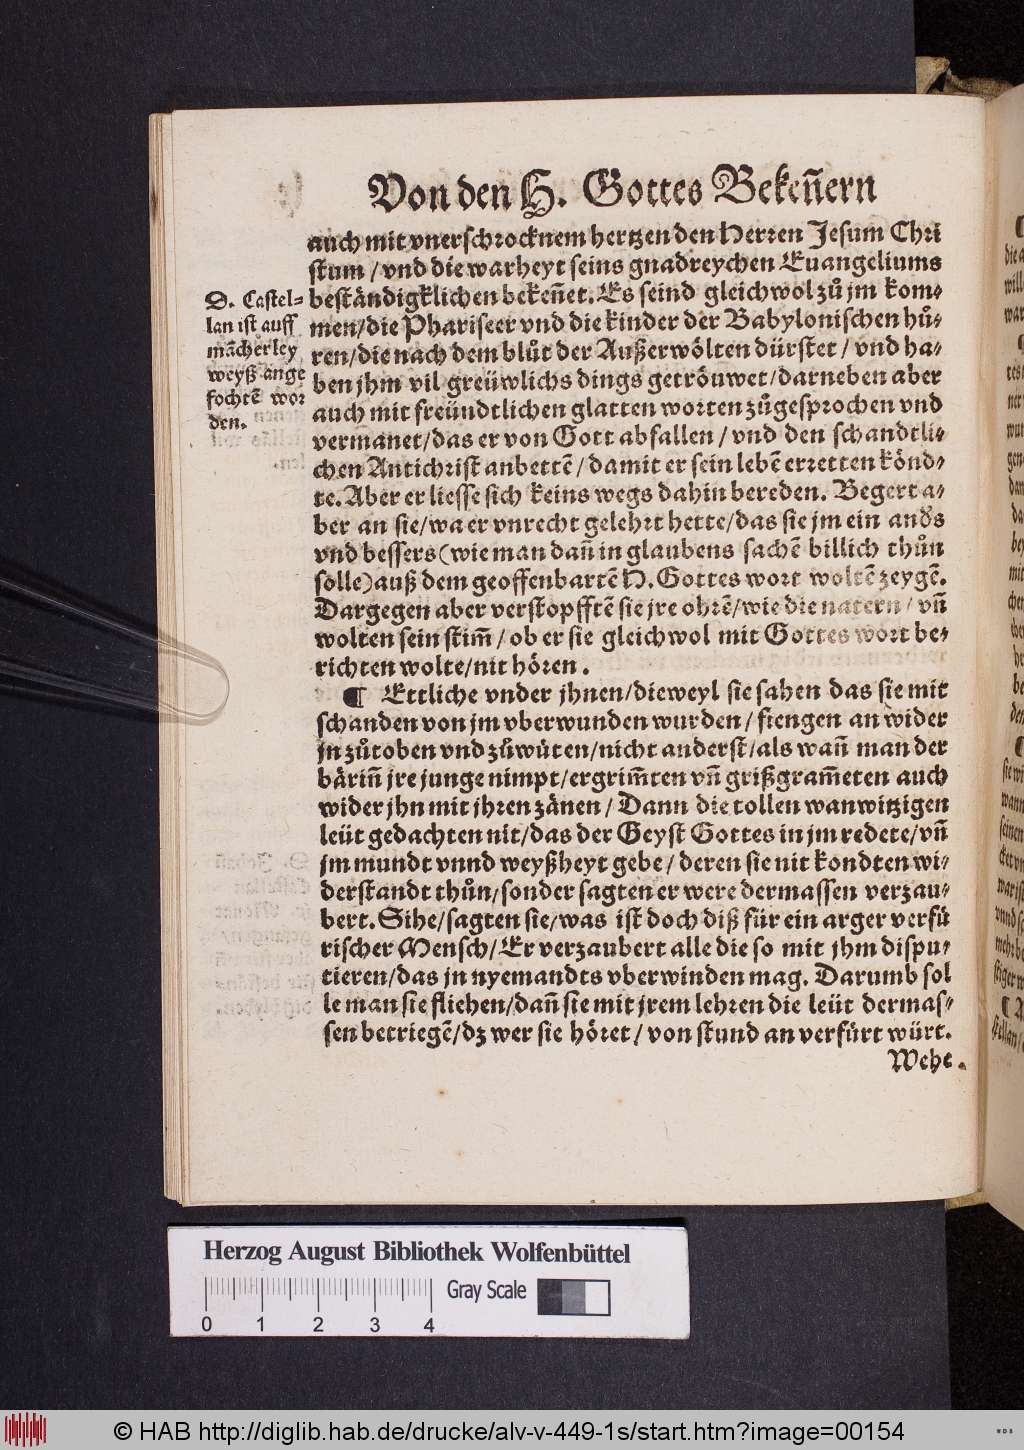 Von den H. Gottes Bekeñern
auch mit vnerschrocknem hertzen den Herren Jesum Chri
stum / vnd die warheyt seins gnadreychen Euangeliums
beständigklichen bekeñet. Es seind gleichwol zů jm kom⸗
men/die Phariseer vnd die kinder der Babylonischen hů⸗
ren/die nach dem blůt der Außerwölten dürstet / vnd ha⸗
ben jhm vil greüwlichs dings getröuwet/darneben aber
auch mit freündtlichen glatten worten zůgesprochen vnd
vermanet/das er von Gott abfallen / vnd den schandtli⸗
chen Antichrist anbettē / damit er sein lebē erretten könd⸗
te. Aber er liesse sich keins wegs dahin bereden. Begert a⸗
ber an sie/wa er vnrecht gelehrt hette/das sie jm ein anders
vnd bessers (wie man dañ in glaubens sachē billich thůn
solle) auß dem geoffenbartē H. Gottes wort woltē zeygē.
Dargegen aber verstopfftē sie jre ohrē/wie die natern / vñ
wolten sein stim̃ / ob er sie gleichwol mit Gottes wort be⸗
richten wolte/nit hören.
¶ Ettliche vnder jhnen/dieweyl sie sahen das sie mit
schanden von jm vberwunden wurden / fiengen an wider
jn zůtoben vnd zůwüten/nicht anderst/als wañ man der
bäriñ jre junge nimpt/ergrim̃ten vñ grißgram̃eten auch
wider jhn mit jhren zänen / Dann die tollen wanwitzigen
leüt gedachten nit/das der Geyst Gottes in jm redete/vñ
jm mundt vnnd weyßheyt gebe / deren sie nit kondten wi⸗
derstandt thůn/sonder sagten er were dermassen verzau⸗
bert. Sihe/sagten sie/was ist doch diß für ein arger verfü
rischer Mensch/ Er verzaubert alle die so mit jhm dispu⸗
tieren/das jn nyemandts vberwinden mag. Darumb sol
le man sie fliehen/dañ sie mit jrem lehren die leüt dermas⸗
sen betriegē/dz wer sie höret / von stund an verfürt würt.
Wehe.
D. Castel⸗
lan ist auff
mãcherley
weyß ange
fochtē wor
den.
Herzog August Bibliothek Wolfenbüttel
Gray Scale
0 1 2 3 4
© HAB http://diglib.hab.de/drucke/alv-v-449-1s/start.htm?image=00154